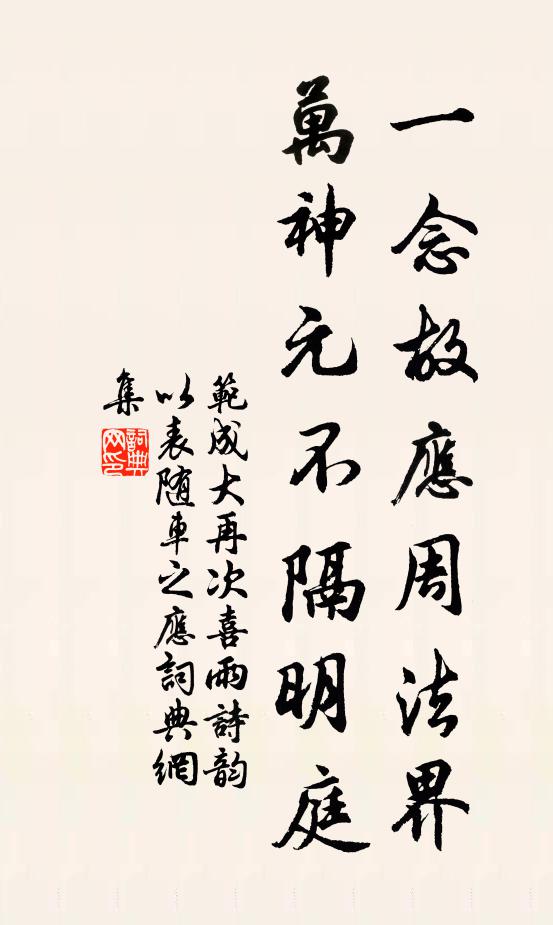 一念故應周法界
萬神元不隔明庭
範成大再次喜雨詩韵
以表随車之應詞典網
集
詞典網印